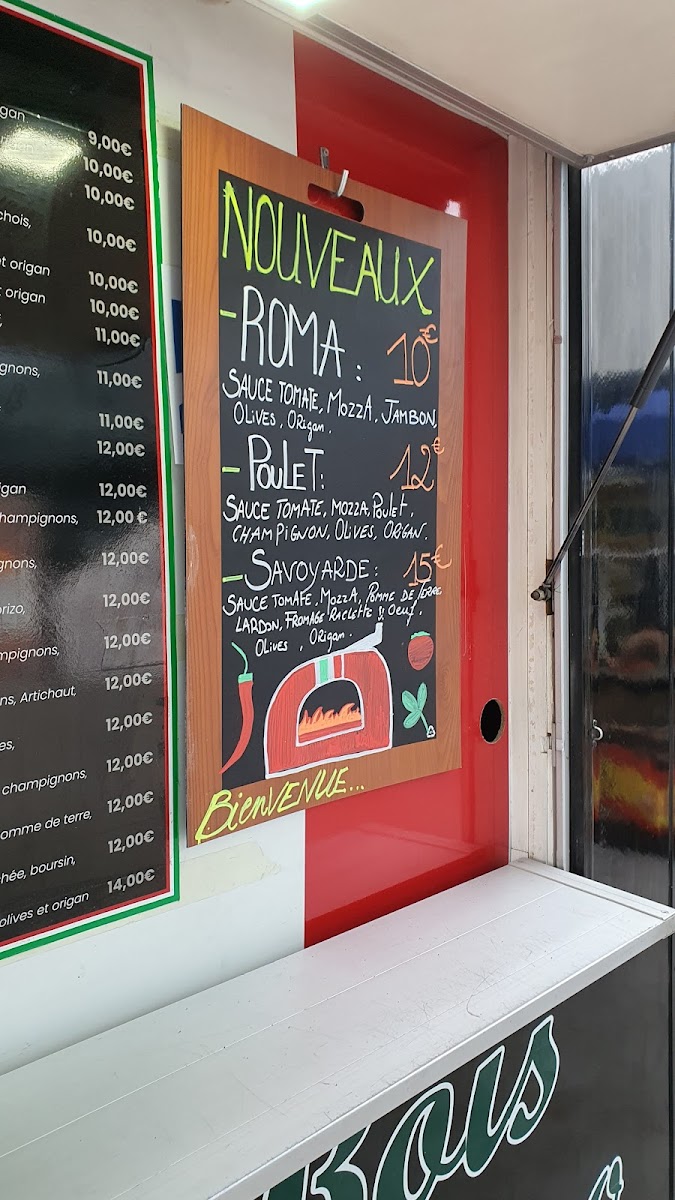 9,00€
10,00€
10,00€
10,00€
et origan
10,00€
t origan
10,00€
11,00€
gnons,
11,00€
11,00€
12,00€
12,00€
champignons,
12,00 €
gnons,
12,00€
12,00€
12,00€
ns, Artichaut,
12,00€
12,00€
champignons,
12,00€
omme de terre,
12,00€
hée, boursin,
12,00€
olives et origan
14,00€
NOUVEAUX
- ROMA : 10€
SAUCE TOMATE, MOZZA, JAMBON,
OLIVES, ORIGAN.
- POULET: 12€
SAUCE TOMATE, MOZZA, POULET,
CHAMPIGNON, OLIVES, ORIGAN.
- SAVOYARDE : 15€
SAUCE TOMATE, MOZZA, POMME DE TERRE
LARDON, FROMAGE RACLETTE, OEUF.
OLIVES, ORIGAN.
BIENVENUE...
Bois